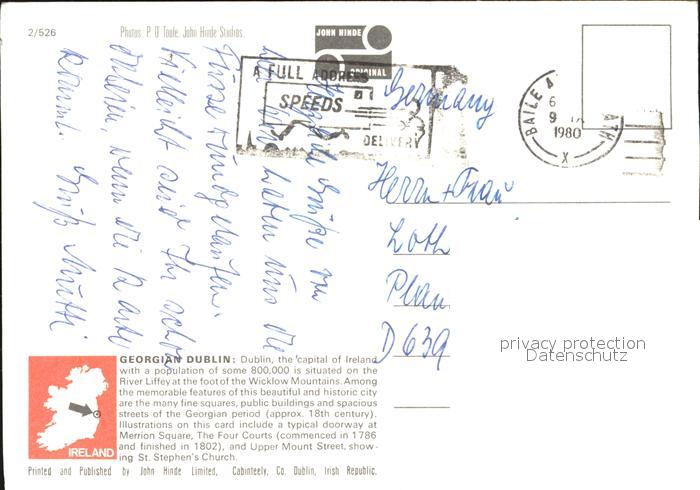 2/526
Photos: P. O'Toole, John Hinde Studios.
JOHN HINDE
ORIGINAL
A FULL ADDRESS
SPEEDS
DELIVERY
BAILE Á
ATH
6
9
1980
X
Germany
Herrn + Frau
Loth
Plan
D 639
Grüße von
haben uns die
Füsse rundgelaufen.
Vielleicht seid Ihr schon
daheim, wenn die Karte
kommt. Gruß Mutti
privacy protection
Datenschutz
GEORGIAN DUBLIN: Dublin, the capital of Ireland
with a population of some 800,000 is situated on the
River Liffey at the foot of the Wicklow Mountains. Among
the memorable features of this beautiful and historic city
are the many fine squares, public buildings and spacious
streets of the Georgian period (approx. 18th century).
Illustrations on this card include a typical doorway at
Merrion Square, The Four Courts (commenced in 1786
and finished in 1802), and Upper Mount Street, show-
ing St. Stephen's Church.
IRELAND
Printed and Published by John Hinde Limited, Cabinteely, Co. Dublin, Irish Republic.